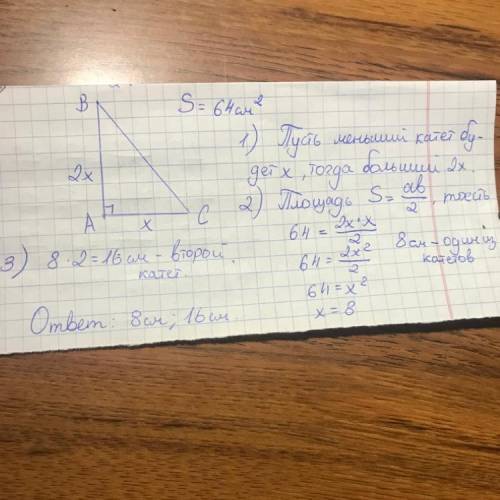 B
S = 64 см²
2x
A
x
C
1) Пусть меньший катет бу-
дет x, тогда больший 2x.
2) Площадь S = ab/2, то есть
64 = 2x·x/2
64 = 2x²/2
64 = x²
x = 8
8 см - один из
катетов
3) 8·2=16 см - второй
катет.
Ответ: 8 см; 16 см.